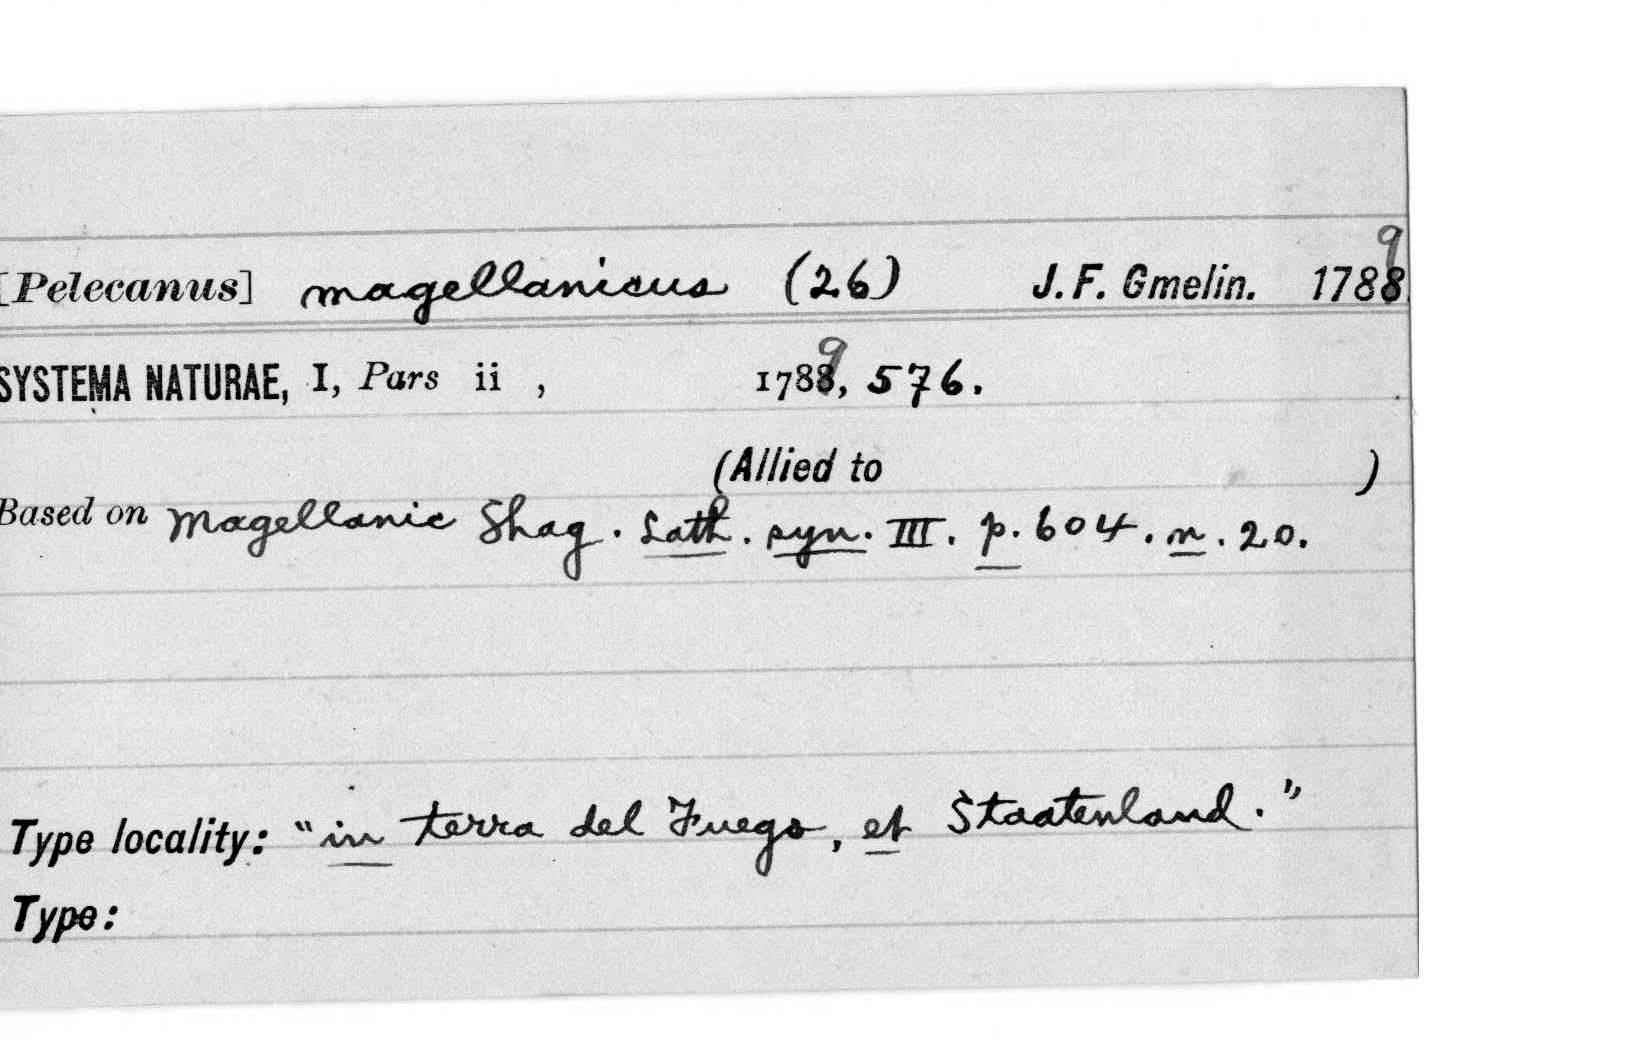 [Pelecanus] magellanicus (26) J. F. Gmelin. 1788 9
SYSTEMA NATURAE, I, Pars ii , 1788 9, 576.
(Allied to )
Based on Magellanic Shag. Lath. syn. III. p. 604. n. 20.
Type locality: "in terra del Fuego, et Staatenland."
Type: